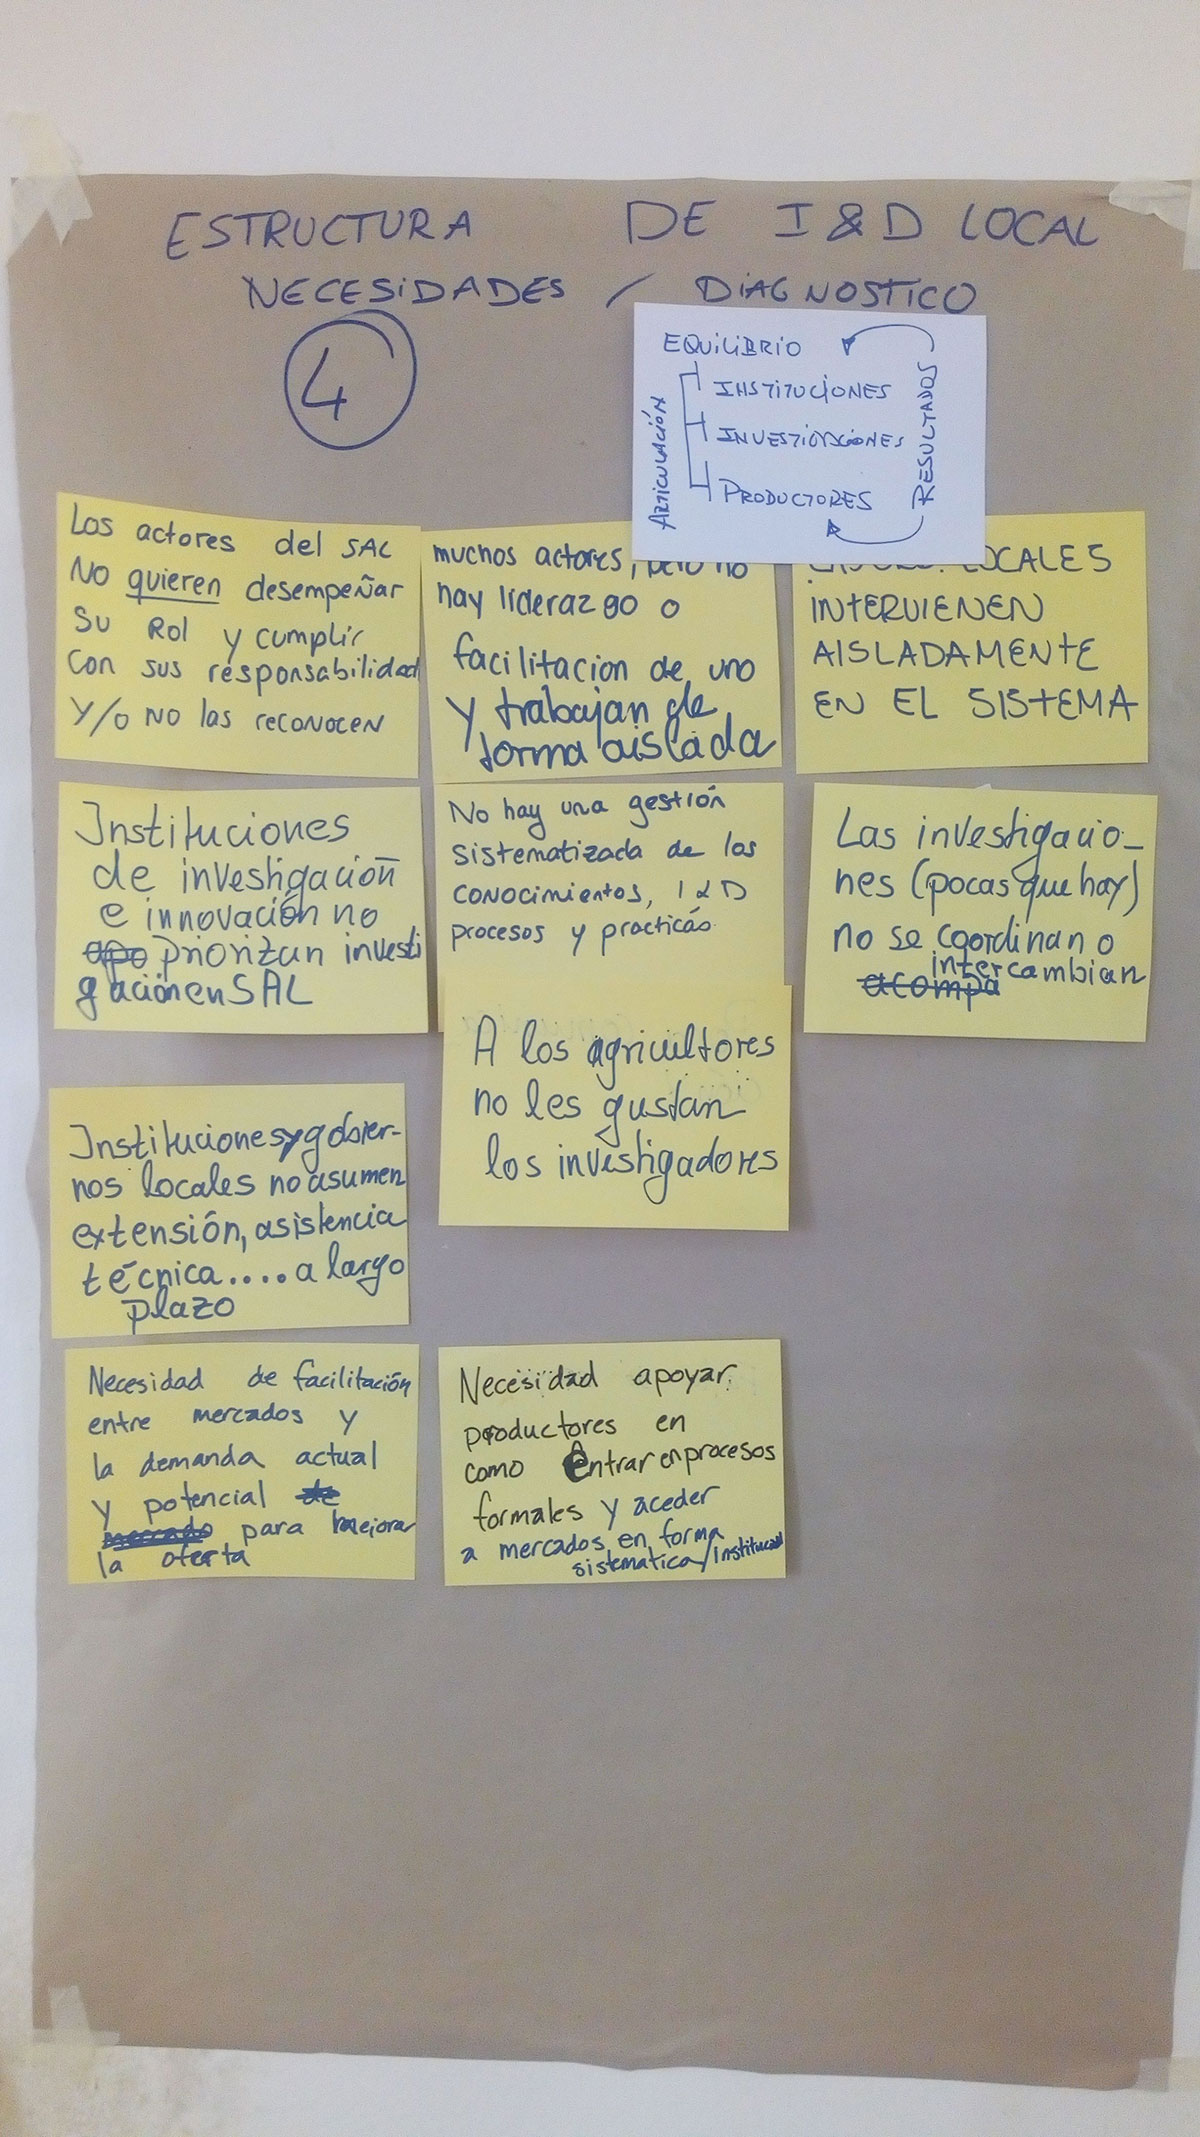 ESTRUCTURA DE I & D LOCAL
NECESIDADES / DIAGNOSTICO
4
EQUILIBRIO
INSTITUCIONES
INVESTIGACIONES
PRODUCTORES
ARTICULACIÓN
RESULTADOS
Los actores del SAL
No quieren desempeñar
Su Rol y cumplir
con sus responsabilidad
Y/o NO las reconocen
muchos actores, pero no
hay liderazgo o
facilitacion de uno
y trabajan de
forma aislada
LOCALES
INTERVIENEN
AISLADAMENTE
EN EL SISTEMA
Instituciones
de investigación
e innovación no
apo priorizan investi
gación en SAL
No hay una gestión
sistematizada de los
conocimientos, I & D
procesos y practicás
Las investigacio_
nes (pocas que hay)
no se coordinan o
intercambian
acompa
A los agricultores
no les gustan
los investigadores
Instituciones y gobier-
nos locales no asumen
extensión, asistencia
técnica.... a largo
plazo
Necesidad de facilitación
entre mercados y
la demanda actual
y potencial de
mercado para mejorar
la oferta
Necesidad apoyar
productores en
como Entrar en procesos
formales y aceder
a mercados en forma
sistematica/